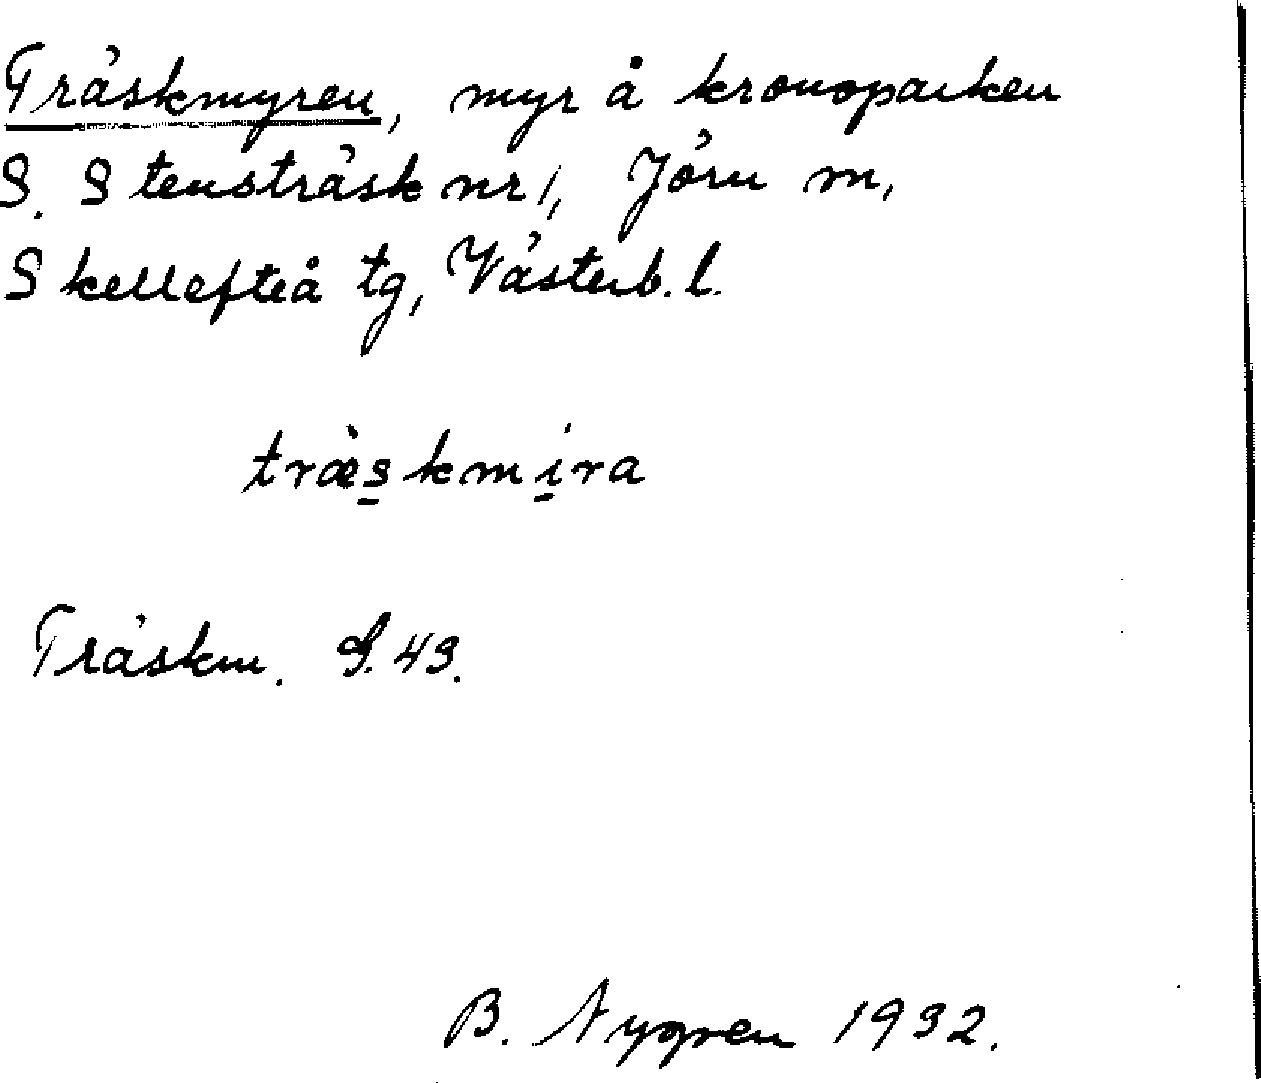 Träskmyren, myr å kronoparken
S. Stensträsk nr 1, Jörn m,
Skellefteå tg, Västerb. l.
træ̀s̲kmi̲ra
Träskm. S. 43.
B. Nygren 1932.